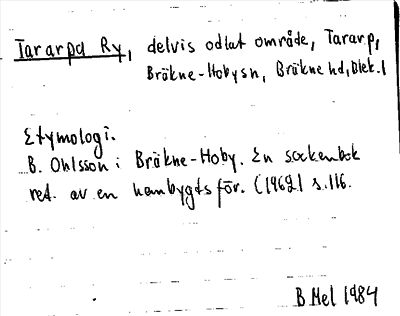 Tararpa Ry, delvis odlat område, Tararp,
Bräkne-Hobysn, Bräkne hd, Blek.l
Etymologi.
B. Ohlsson i Bräkne-Hoby. En sockenbok
red. av en hembygdsför. (1962) s. 116.
B Mel 1984